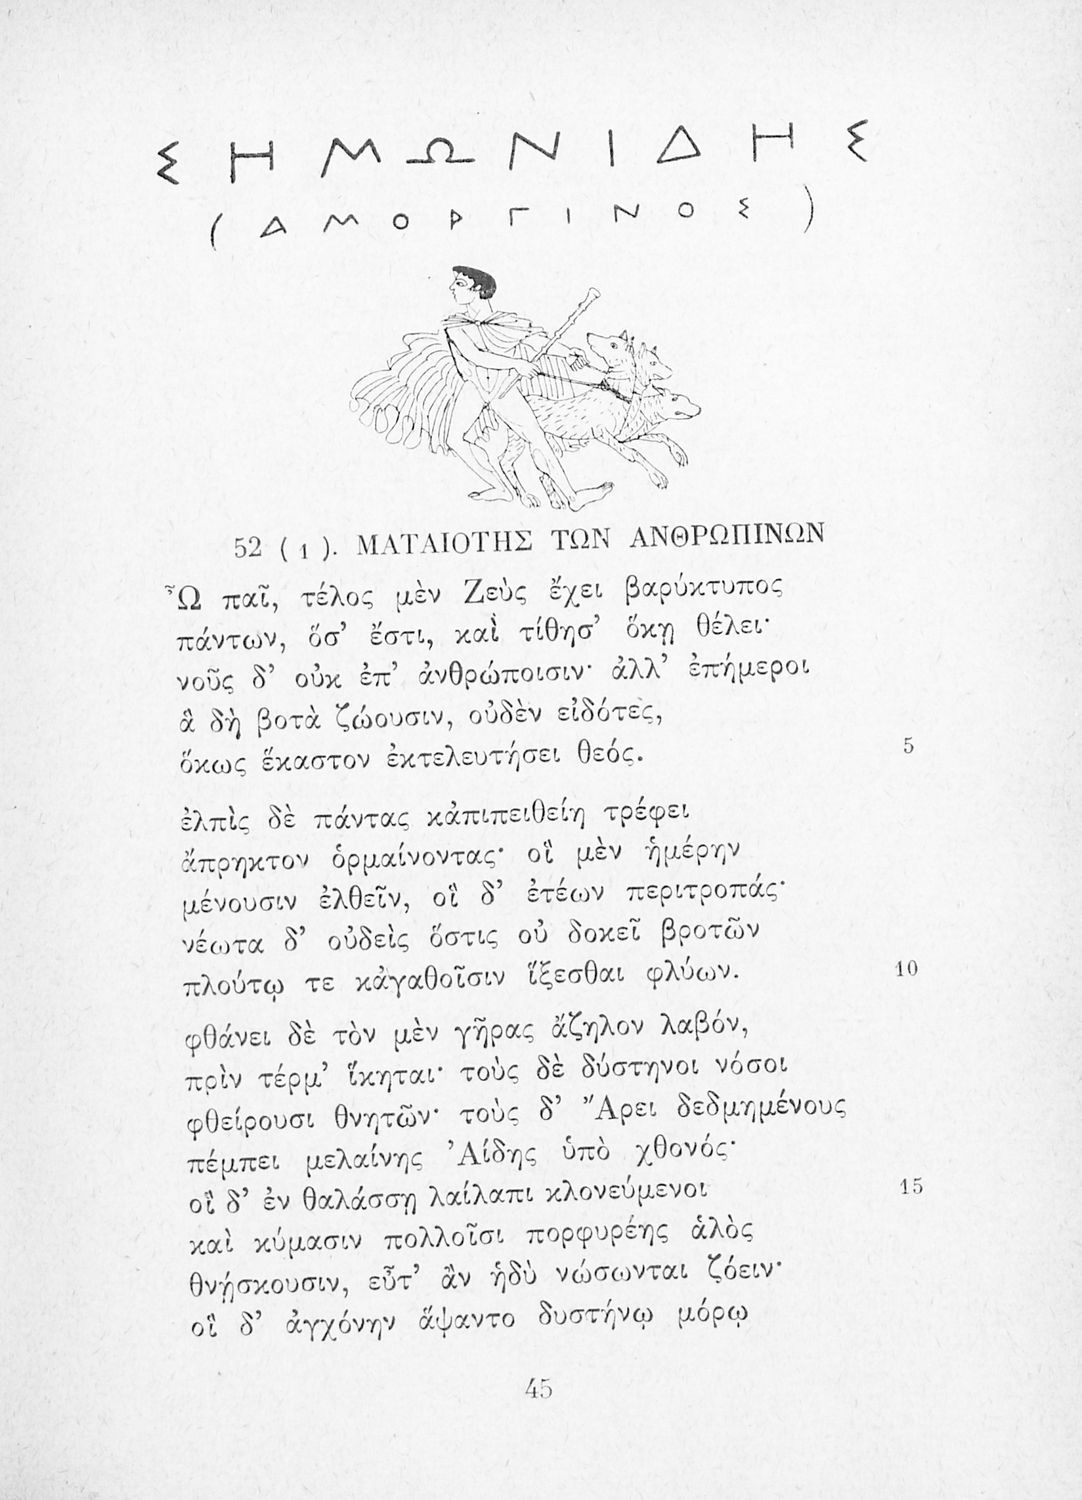 ΣΗΜΩΝΙΔΗΣ
(ΑΜΟΡΓΙΝΟΣ)
52 (1). ΜΑΤΑΙΟΤΗΣ ΤΩΝ ΑΝΘΡΩΠΙΝΩΝ
Ὦ παῖ, τέλος μὲν Ζεὺς ἔχει βαρύκτυπος
πάντων, ὅσ’ ἔστι, καὶ τίθησ’ ὅκῃ θέλει·
νοῦς δ’ οὐκ ἐπ’ ἀνθρώποισιν· ἀλλ’ ἐπήμεροι
ἃ δὴ βοτὰ ζώουσιν, οὐδὲν εἰδότες,
ὅκως ἕκαστον ἐκτελευτήσει θεός. 5
ἐλπὶς δὲ πάντας κἀπιπειθείη τρέφει
ἄπρηκτον ὁρμαίνοντας· οἳ μὲν ἡμέρην
μένουσιν ἐλθεῖν, οἳ δ’ ἐτέων περιτροπάς·
νέωτα δ’ οὐδεὶς ὅστις οὐ δοκεῖ βροτῶν
πλούτῳ τε κἀγαθοῖσιν ἵξεσθαι φλύων. 10
φθάνει δὲ τὸν μὲν γῆρας ἄζηλον λαβόν,
πρὶν τέρμ’ ἵκηται· τοὺς δὲ δύστηνοι νόσοι
φθείρουσι θνητῶν· τοὺς δ’ Ἄρει δεδμημένους
πέμπει μελαίνης Ἀίδης ὑπὸ χθονός·
οἳ δ’ ἐν θαλάσσῃ λαίλαπι κλονεύμενοι 15
καὶ κύμασιν πολλοῖσι πορφυρέης ἁλὸς
θνῄσκουσιν, εὖτ’ ἂν ἡδὺ νώσωνται ζόειν·
οἳ δ’ ἀγχόνην ἅψαντο δυστήνῳ μόρῳ
45